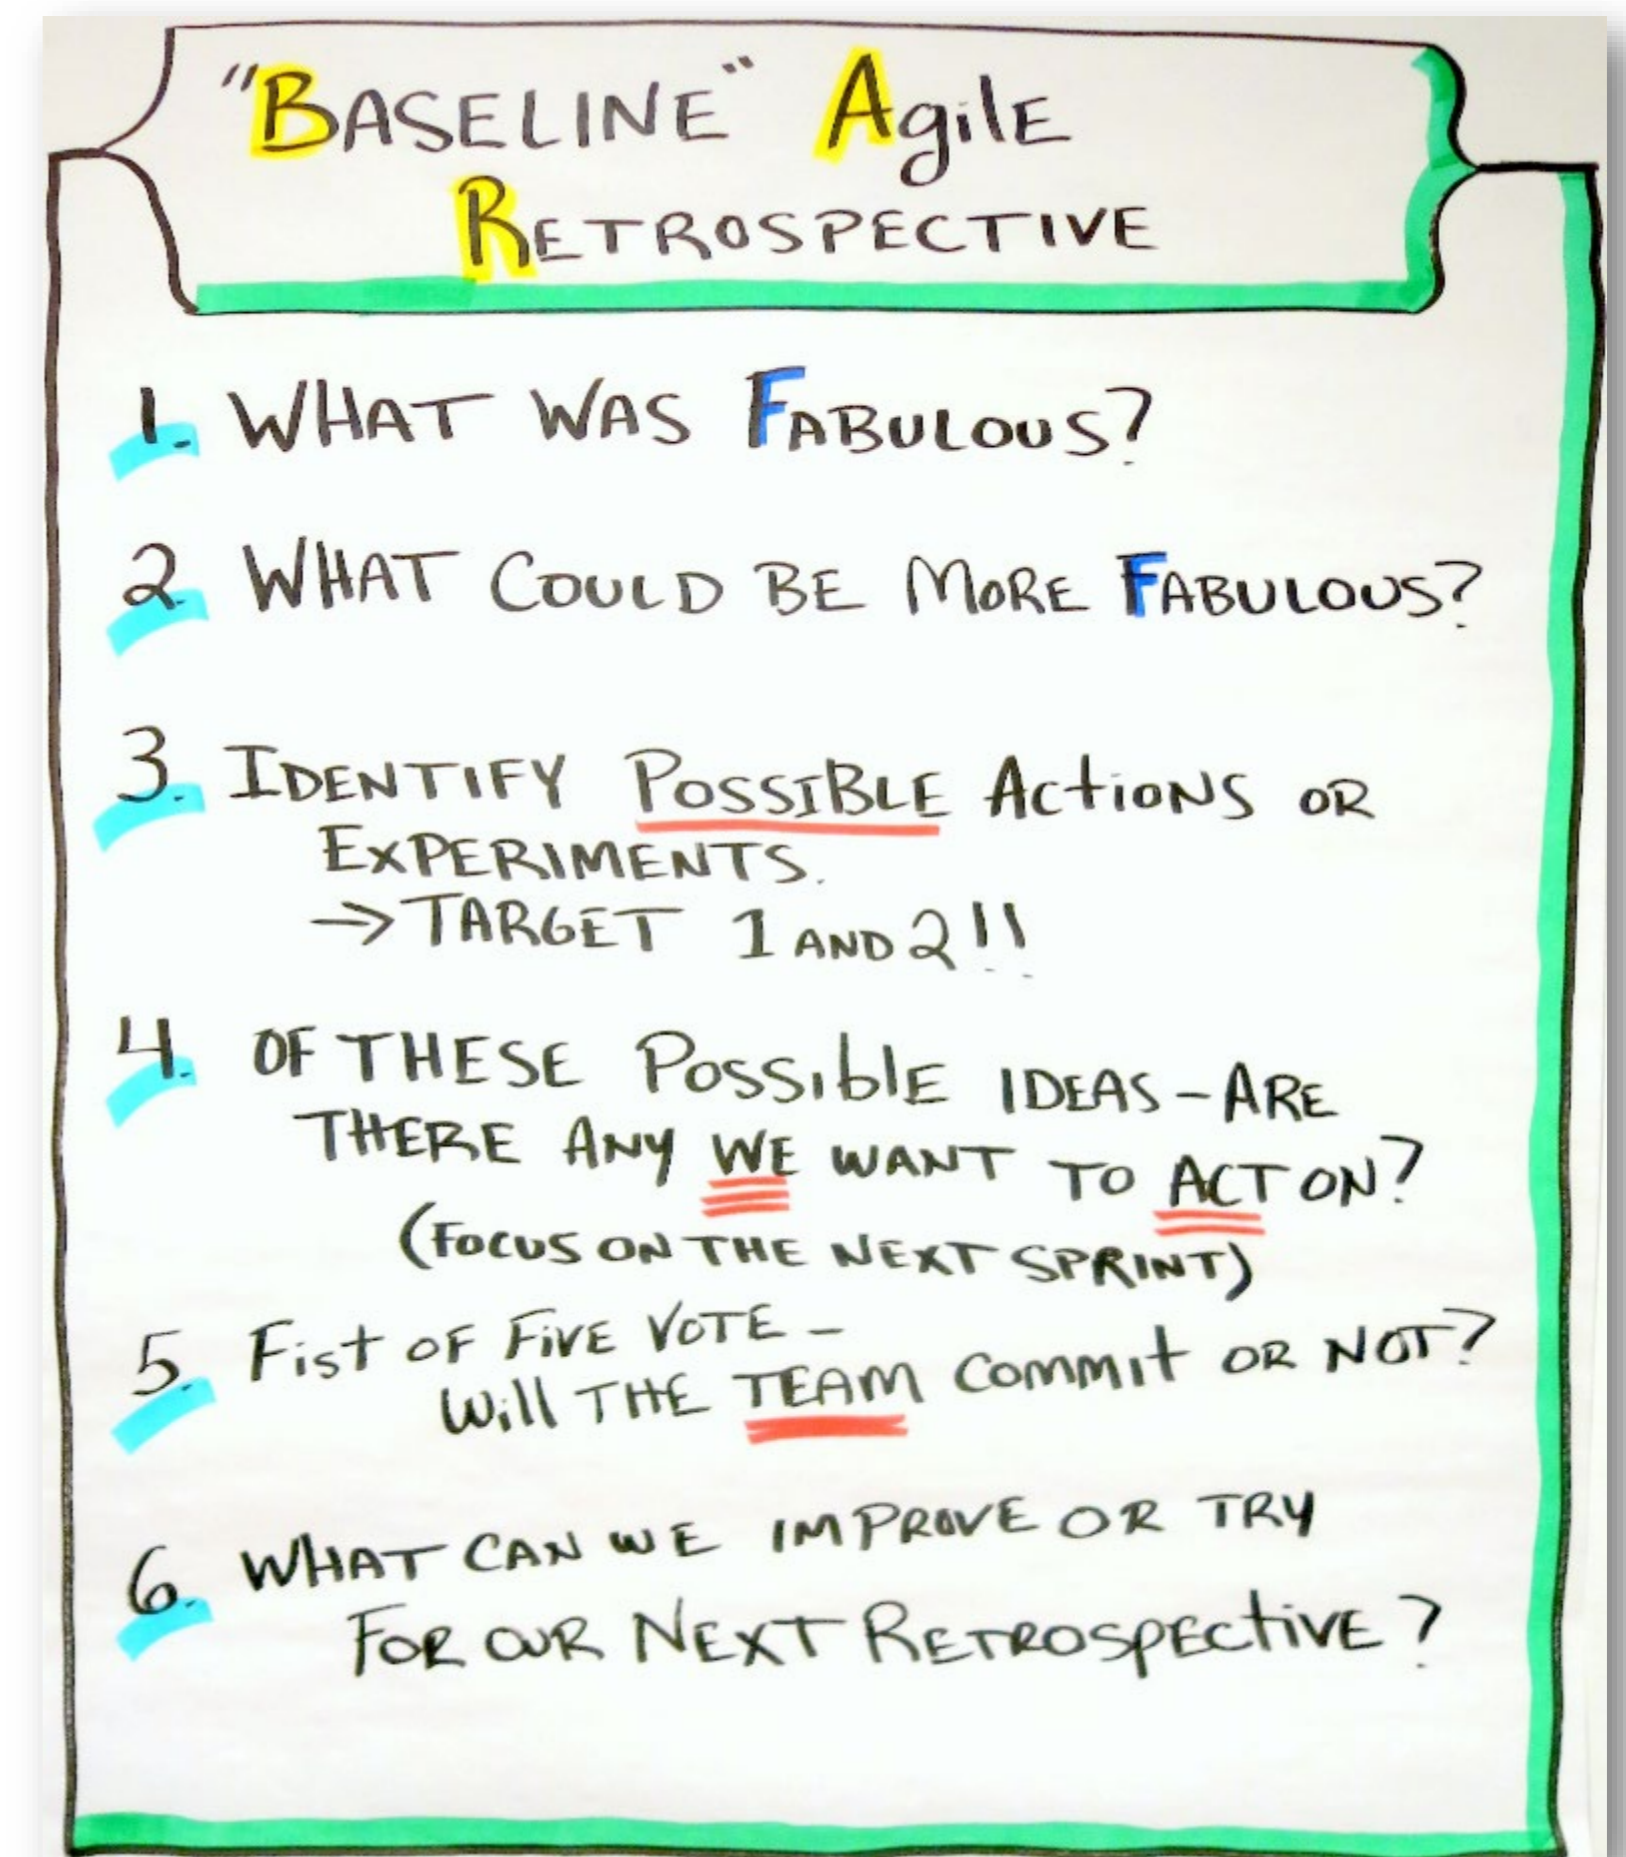 "BASELINE" AgilE
RETROSPECTIVE
1. WHAT WAS FABULOUS?
2. WHAT COULD BE MORE FABULOUS?
3. IDENTIFY POSSIBLE ActiONS OR
EXPERIMENTS.
→ TARGET 1 AND 2!!
4. OF THESE PossiblE IDEAS - ARE
THERE ANy WE WANT TO ACT ON?
(FOCUS ON THE NEXT SPRINT)
5. Fist OF FiVE VOTE -
Will THE TEAM COMMit OR NOT?
6. WHAT CAN WE IMPROVE OR TRY
FOR OUR NEXT RETROSPECtiVE?